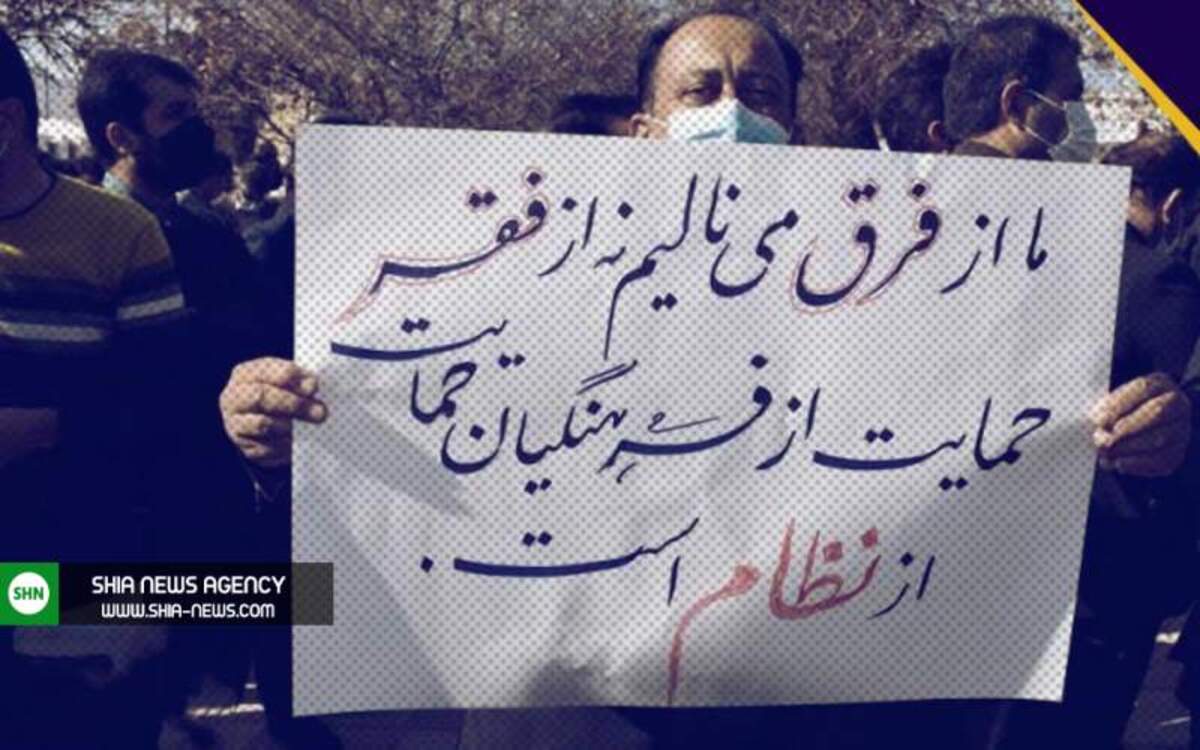 ما از فرق می نالیم نه از فقر
حمایت از فرهنگیان حمایت
از نظام است.
SHN
SHIA NEWS AGENCY
WWW.SHIA-NEWS.COM